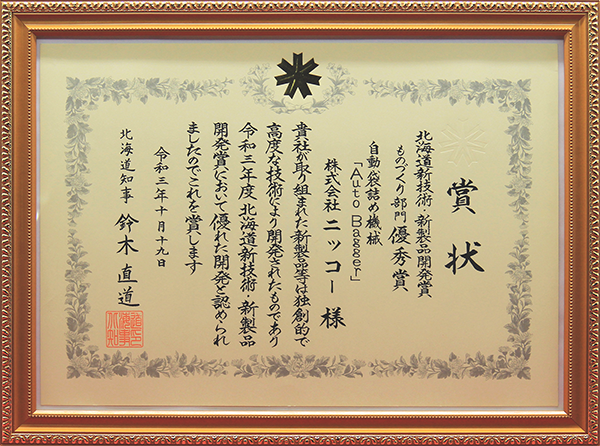 賞状
北海道新技術・新製品開発賞
ものづくり部門 優秀賞
自動袋詰め機械
「Auto Bagger」
株式会社 ニッコー 様
貴社が取り組まれた新製品等は独創的で
高度な技術により開発されたものであり
令和三年度北海道新技術・新製品
開発賞において優れた開発と認められ
ましたのでこれを賞します
令和三年十月十九日
北海道知事 鈴木直道